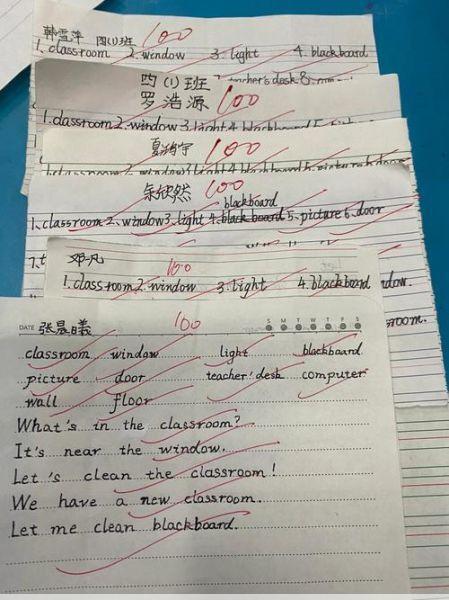 韩雪萍 四(1)班 100
1. classroom 2. window 3. light 4. blackboard
teacher's desk 8.
四(1)班
罗浩源 100
1. classroom 2. window 3. light 4. blackboard 5.
100
1. classroom 2. window 3. light 4. blackboard 5. picture 6. door
然 100
blackboard
1. classroom 2. window 3. light 4. 5. picture 6. door
7.
邓凡 100
1. classroom 2. window 3. light 4. blackboard
room.
DATE 张晨曦 100 S M T W T F S
classroom window light blackboard
picture door teacher' desk computer
wall floor
What's in the classroom?
It's near the window.
Let's clean the classroom!
We have a new classroom.
Let me clean blackboard.